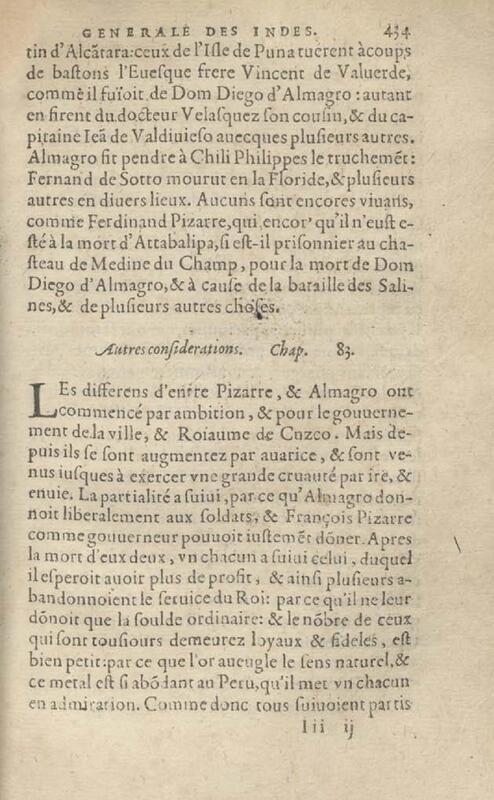 GENERALE DES INDES. 434
tin d'Alcãtara: ceux de l'Isle de Puna tuerent à coups
de bastons l'Euesque frere Vincent de Valuerde,
commẽ il fuïoit de Dom Diego d'Almagro : autant
en firent du docteur Velasquez son cousin, & du ca-
pitaine Ieã de Valdiuieso auecques plusieurs autres.
Almagro fit pendre à Chili Philippes le truchemẽt:
Fernand de Sotto mourut en la Floride, & plusieurs
autres en diuers lieux. Aucuns sont encores viuans,
comme Ferdinand Pizarre, qui encor' qu'il n'eust e-
sté à la mort d'Attabalipa, si est-il prisonnier au cha-
steau de Medine du Champ, pour la mort de Dom
Diego d'Almagro, & à cause de la bataille des Sali-
nes, & de plusieurs autres choses.
Autres considerations. Chap. 83.
LEs differens d'entre Pizarre, & Almagro ont
commencé par ambition, & pour le gouuerne-
ment de la ville, & Roiaume de Cuzco. Mais de-
puis ils se sont augmentez par auarice, & sont ve-
nus iusques à exercer vne grande cruauté par ire, &
enuie. La partialité a suiui, par ce qu'Almagro don-
noit liberalement aux soldats, & François Pizarre
comme gouuerneur pouuoit iustemẽt dõner. Apres
la mort d'eux deux, vn chacun a suiui celui, duquel
il esperoit auoir plus de profit, & ainsi plusieurs a-
bandonnoient le seruice du Roi: par ce qu'il ne leur
dõnoit que la soulde ordinaire: & le nõbre de ceux
qui sont tousiours demeurez loyaux & fideles, est
bien petit: par ce que l'or aueugle le sens naturel, &
ce metal est si abõdant au Peru, qu'il met vn chacun
en admiration. Comme donc tous suiuoient partis
Iii ij